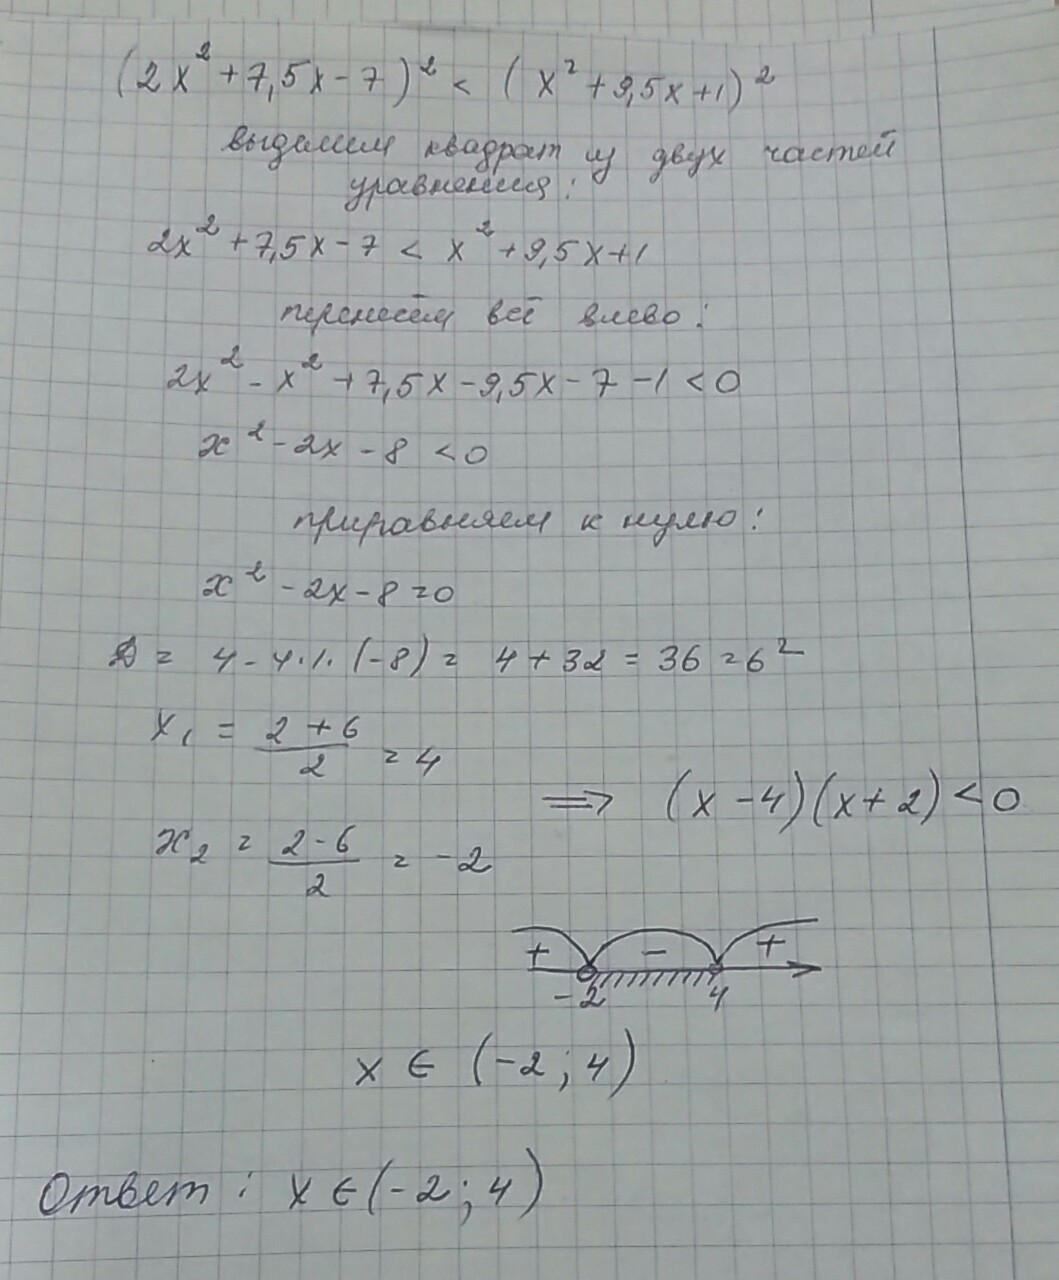 (2x² + 7,5x - 7)² < (x² + 9,5x + 1)²
выделим квадрат из двух частей
уравнения:
2x² + 7,5x - 7 < x² + 9,5x + 1
перенесём всё влево:
2x² - x² + 7,5x - 9,5x - 7 - 1 < 0
x² - 2x - 8 < 0
приравняем к нулю:
x² - 2x - 8 = 0
D = 4 - 4·1·(-8) = 4 + 32 = 36 = 6²
x₁ = (2 + 6)/2 = 4
⟹ (x - 4)(x + 2) < 0
x₂ = (2 - 6)/2 = -2
+ - +
-2 4
x ∈ (-2; 4)
Ответ: x ∈ (-2; 4)